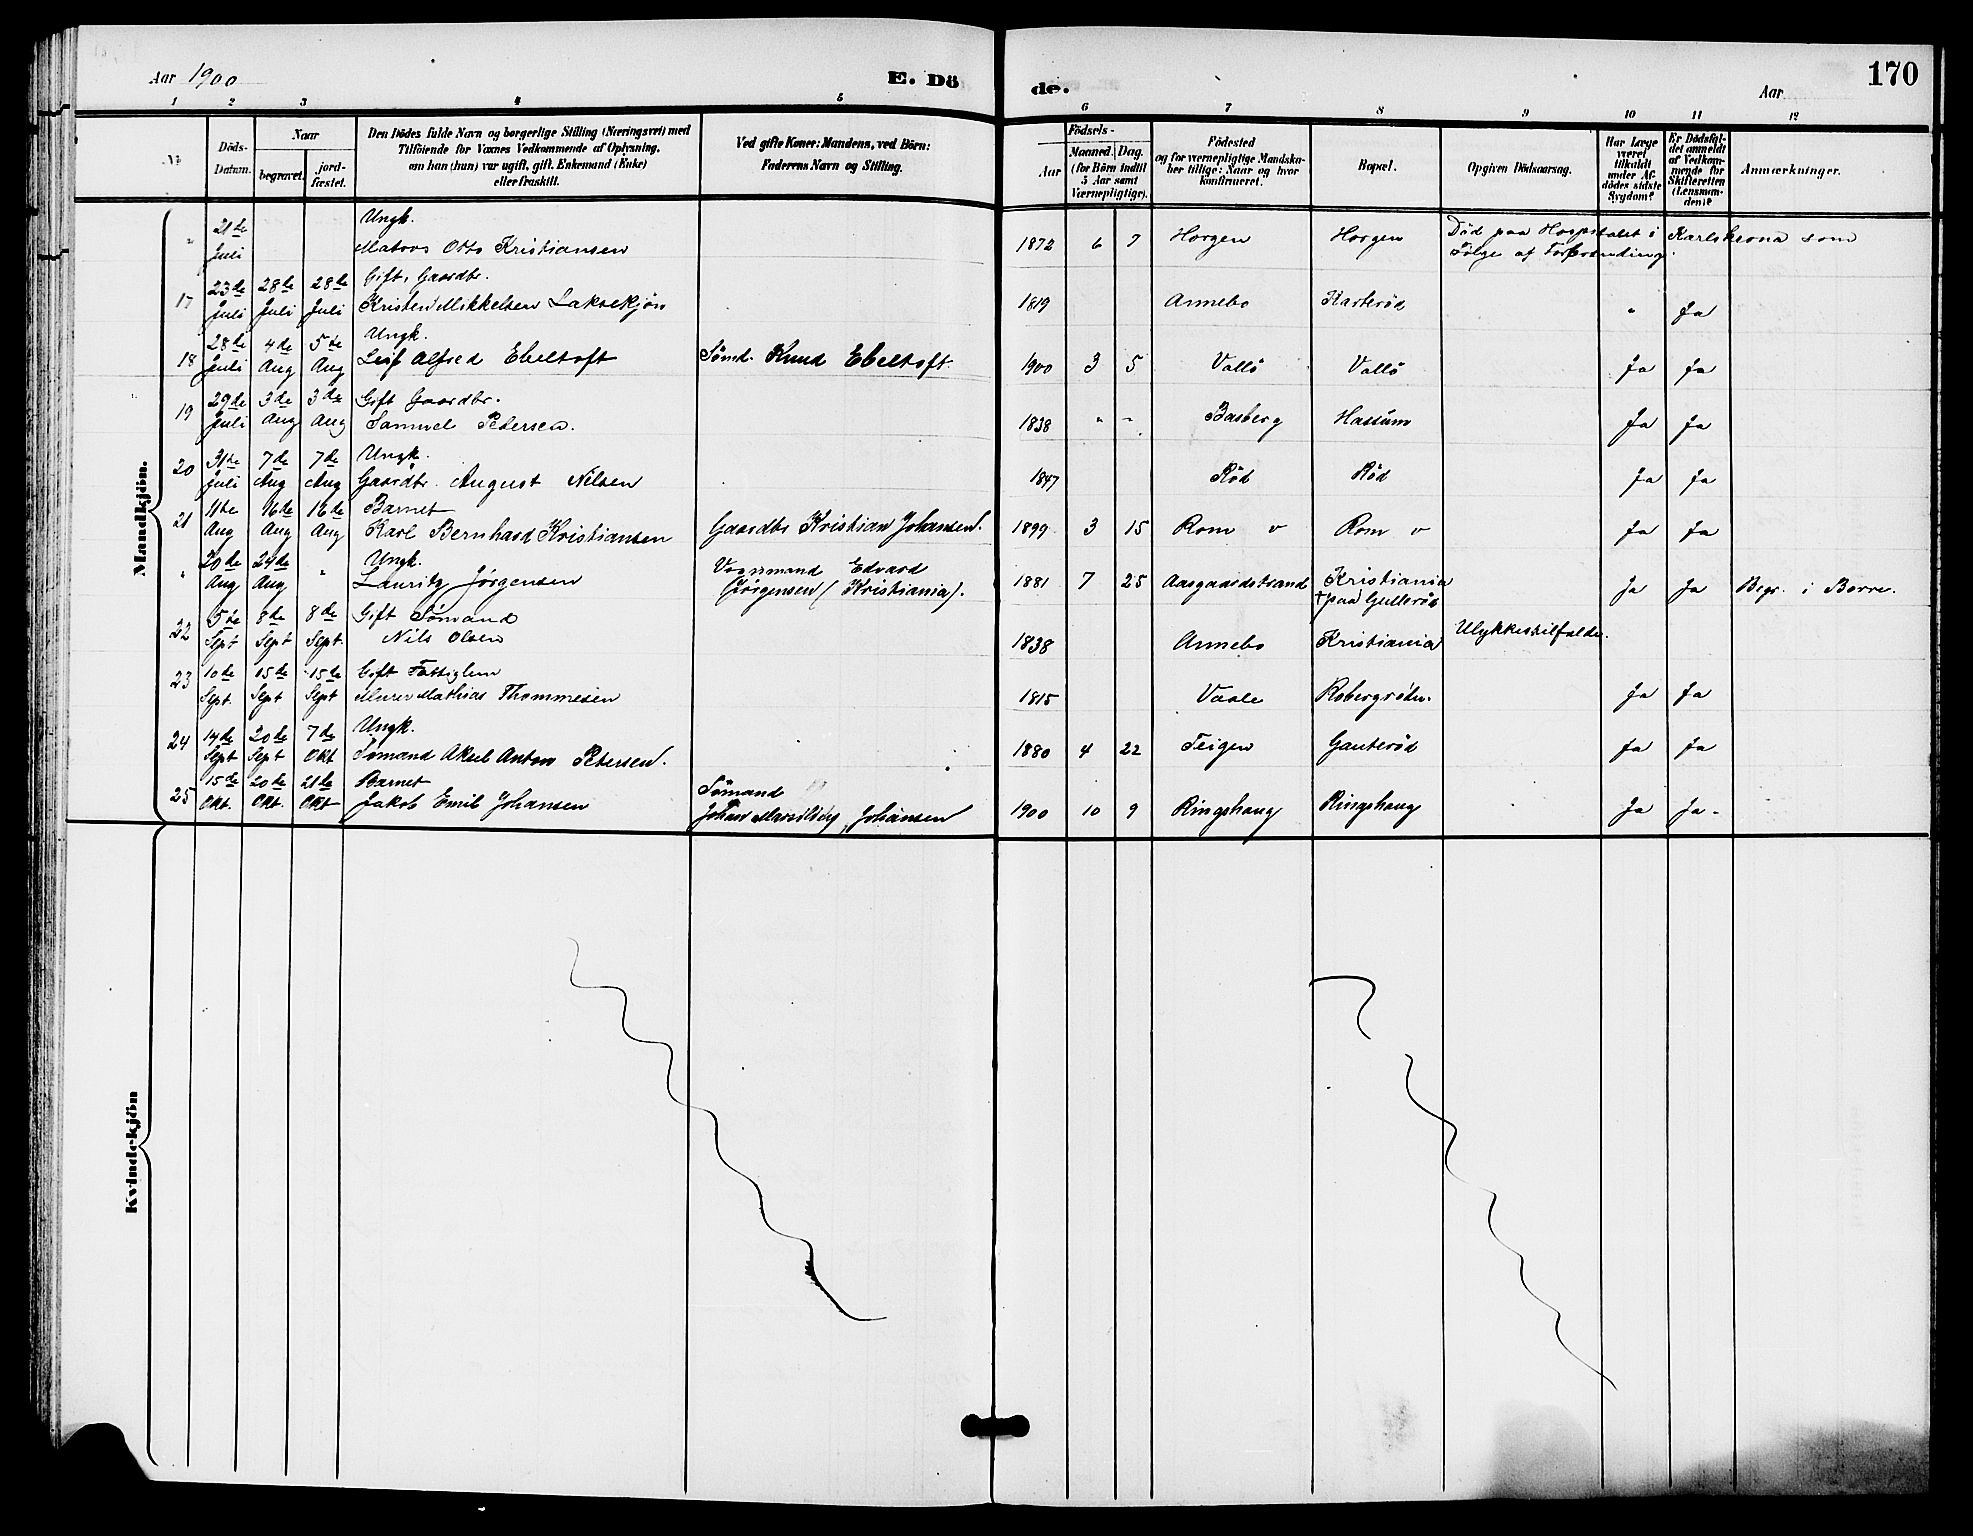 Aar 1900
E. Dö
de.
Aar
170
1 2 3 4 5 6 7 8 9 10 11 12
No
Döds-
Datum.
Naar
begravet.
jord-
fæstet.
Den Dödes fulde Navn og borgerlige Stilling (Næringsvei) med
Tilföiende for Voxnes Vedkommende af Oplysning,
om han (hun) var ugift, gift, Enkemand (Enke)
eller fraskilt.
Ved gifte Koner: Mandens, ved Börn:
Faderens Navn og Stilling.
Födsels-
Aar
Maaned. Dag.
(for Börn indtil
5 Aar samt
Værnepligtige).
Födested
og for værnepligtige Mandska-
ber tillige: Naar og hvor
Konfirmeret.
Bopæl.
Opgiven Dödsaarsag.
Har Læge
været
tilkaldt
under Af-
dödes sidste
Sygdom?
Er Dödsfal-
det anmeldt
af Vedkom-
mende for
Skifteretten
(Lensman-
den)?
Anmærkninger.
Mandkjön.
" 21de Juli Ungk.
Otto Kristiansen 1872 6 7 Horgen Horgen Död paa Hospitalet i Karlskrona som
Følge af Forbrænding.
17 23de Juli 28de Juli 28de Juli Gift, Gaardbr.
Kristen Mikkelsen Laksekjön 1819 Annebo Karterød " Ja
18 28de Juli 4de Aug 5te Aug Ungk.
Leif Alfred Ebeltoft Sömd. Knud Ebeltoft. 1900 3 5 Vallö Vallö Ja Ja
19 29de Juli 3de Aug 3de Aug Gift Gaardbr.
Samuel Petersen. 1838 " " Basberg Hassum Ja Ja
20 31te Juli 7de Aug 7de Aug Ungk.
Gaardbr. August Nilsen 1847 Rød Rød Ja Ja
21 11te Aug 16de Aug 16de Aug Barnet
Karl Bernhard Kristiansen Gaardbr Kristian Johansen. 1899 3 15 Rom v Rom v Ja Ja
" 20de Aug 24de Aug " Ungk.
Lauritz Jørgensen Vognmand Edvard
Jörgensen (Kristiania). 1881 7 25 Aasgaardstrand Kristiania
† paa Gullerød Ja Ja Begr. i Borre.
22 5te Sept 8de Sept 8de Sept. Gift Sömand
Nils Olsen 1838 Annebo Kristiania Ulykkestilfælde.
23 10de Sept. 15de Sept 15de Sept Gift Fattiglem
Murer Mathias Thommesen 1815 Vaale Robergrödn. Ja Ja
24 14de Sept 20de Sept 7de Okt Ungk.
Sömand Aksel Anton Petersen. 1880 4 22 Teigen Gauterød Ja Ja
25 15de Okt. 20de Okt. 21de Okt Barnet
Jakob Emil Johansen Sömand
Johan Johansen 1900 10 9 Ringshaug Ringshaug Ja Ja -
Kvindekjön